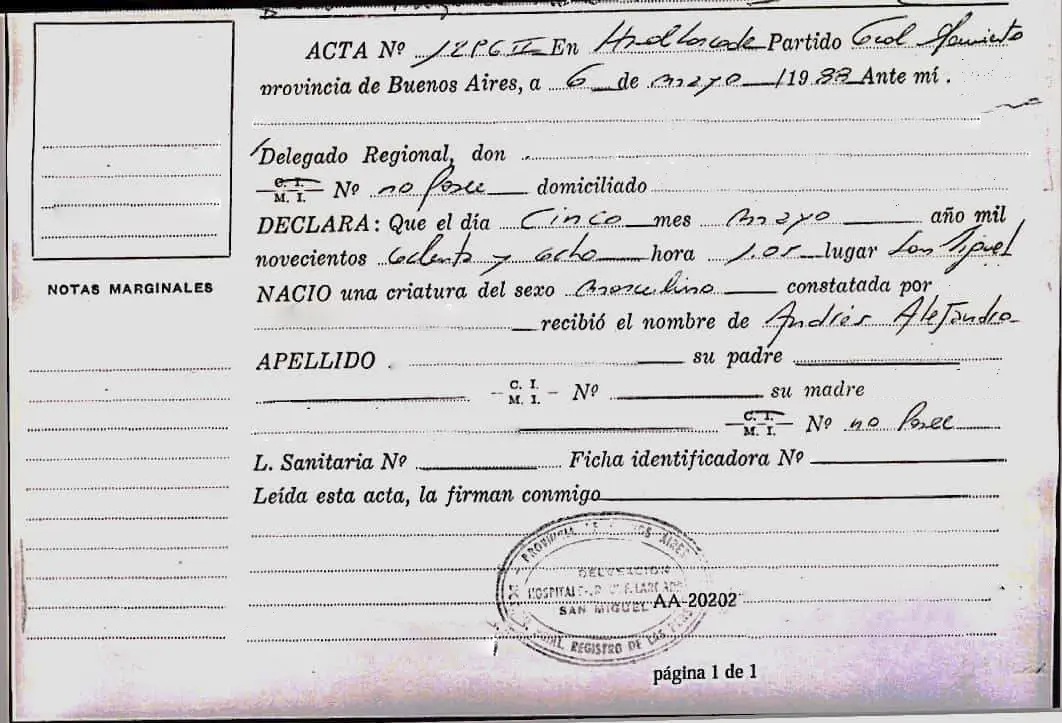 ACTA Nº 12PGII En Partido Gral Sarmiento
provincia de Buenos Aires, a 6 de mayo /1988 Ante mí.
Delegado Regional, don
C. I.
M. I. Nº no Posee domiciliado
DECLARA: Que el día Cinco mes mayo año mil
novecientos ochenta y ocho hora 1.05 lugar San Miguel
NACIO una criatura del sexo masculino constatada por
recibió el nombre de Andrés Alejandro
APELLIDO su padre
C. I.
M. I. Nº su madre
C. I.
M. I. Nº no Posee
L. Sanitaria Nº Ficha identificadora Nº
Leída esta acta, la firman conmigo
NOTAS MARGINALES
PROVINCIA AIRES
DELEGACION
HOSPITAL
SAN MIGUEL AA-20202
REGISTRO DE LAS
página 1 de 1